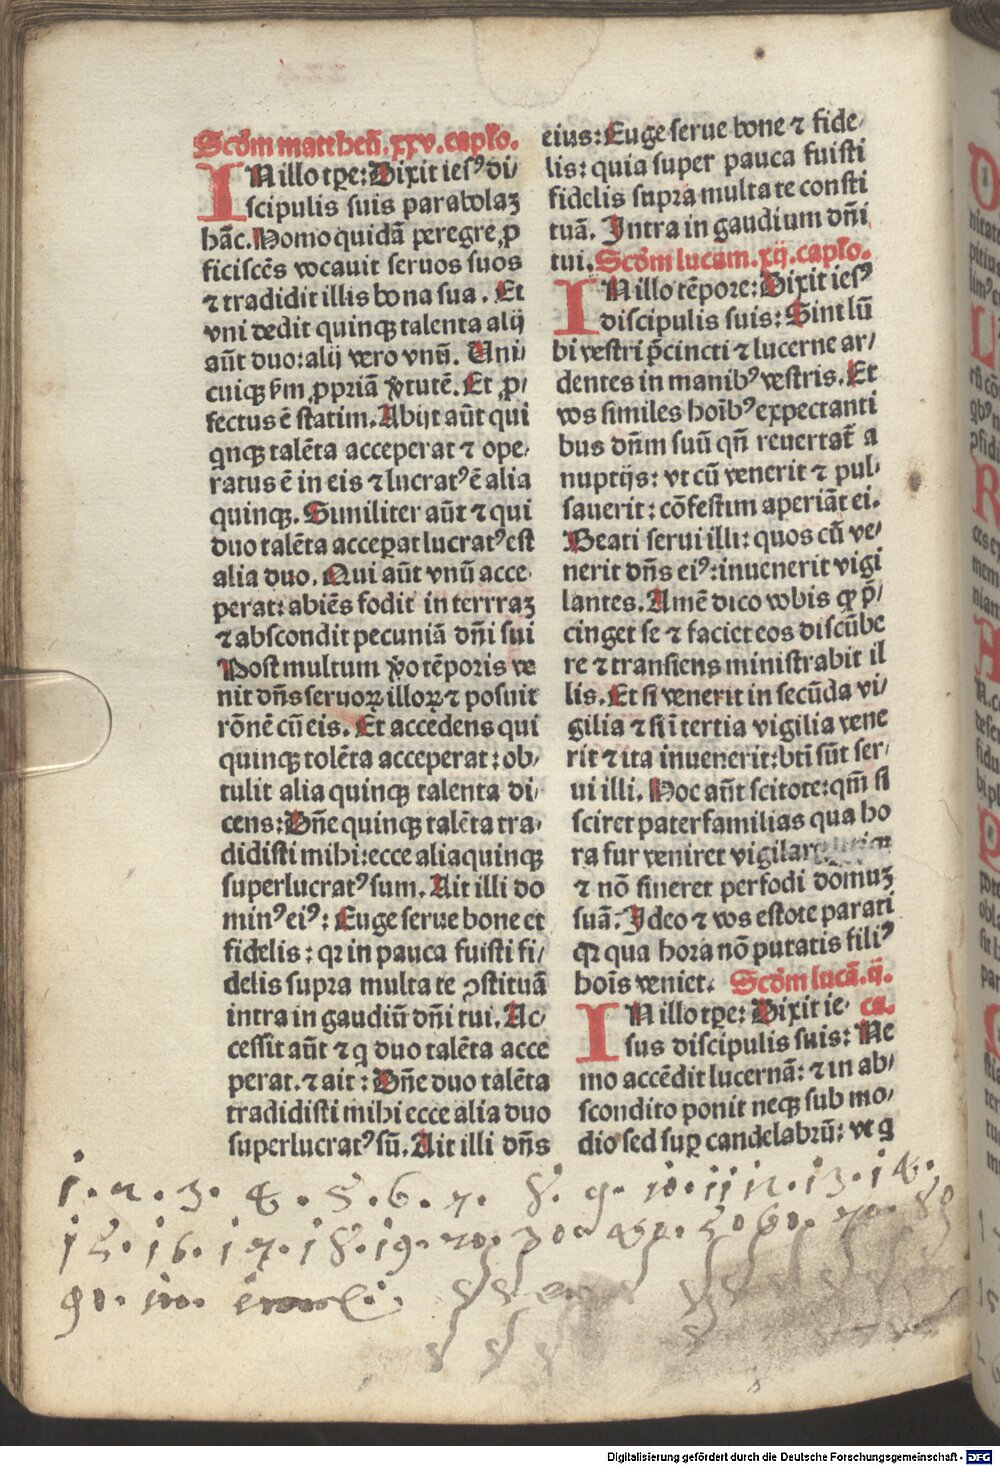 Scd̄m mattheū.xxv.capl̄o.
IN illo tp̄e: Dixit ies⁹ di/
scipulis suis parabolaꝫ
hāc. Homo quidā peregre ꝓ
ficiscēs vocauit seruos suos
⁊ tradidit illis bona sua. Et
vni dedit quinqꝫ talenta alij
aūt duo: alij vero vnū. Uni/
cuiqꝫ ẜm ꝓpriā v̓tutē. Et ꝓ/
fectus ē statim. Abijt aūt qui
qnqꝫ talēta acceperat ⁊ ope/
ratus ē in eis ⁊ lucrat⁹ ē alia
quinqꝫ. Similiter aūt ⁊ qui
duo talēta acceꝑat lucrat⁹ est
alia duo. Qui aūt vnū acce/
perat: abiēs fodit in terrraꝫ
⁊ abscondit pecuniā dn̄i sui
Post multum v̓o tēporis ve
nit dn̄s seruoꝝ illoꝝ ⁊ posuit
rōnē cū eis. Et accedens qui
quinqꝫ tolēta acceperat: ob/
tulit alia quinqꝫ talenta di/
cens: Dn̄e quinqꝫ talēta tra/
didisti mihi: ecce alia quinqꝫ
superlucrat⁹ sum. Ait illi do
min⁹ ei⁹: Euge serue bone et
fidelis: qꝛ in pauca fuisti fi/
delis supra multa te ꝯstituā
intra in gaudiū dn̄i tui. Ac/
cessit aūt ⁊ q duo talēta acce
perat. ⁊ ait: Dn̄e duo talēta
tradidisti mihi ecce alia duo
superlucrat⁹ sū. Ait illi dn̄s
eius: Euge serue bone ⁊ fide/
lis: quia super pauca fuisti
fidelis supra multa te consti
tuā. Intra in gaudium dn̄i
tui. Scd̄m lucam.xij.capl̄o.
IN illo tēpore: Dixit ies⁹
discipulis suis: Sint lū
bi vestri p̄cincti ⁊ lucerne ar/
dentes in manib⁹ vestris. Et
vos similes hoīb⁹ expectanti
bus dn̄m suū qn̄ reuertat̄ a
nuptijs: vt cū venerit ⁊ pul/
sauerit: cōfestim aperiāt ei.
Beati serui illi: quos cū ve/
nerit dn̄s ei⁹: inuenerit vigi
lantes. Amē dico vobis ꝙ p̄/
cinget se ⁊ faciet eos discūbe
re ⁊ transiens ministrabit il
lis. Et si venerit in secūda vi/
gilia ⁊ si ī tertia vigilia vene
rit ⁊ ita inuenerit: bt̄i sūt ser/
ui illi. Hoc aūt scitote: qm̄ si
sciret paterfamilias qua ho
ra fur veniret vigilar
⁊ nō sineret perfodi domuꝫ
suā. Ideo ⁊ vos estote parati
qꝛ qua hora nō putatis fili⁹
hoīs veniet. Scd̄m lucā.ij.
IN illo tp̄e: Dixit ie/ ca.
sus discipulis suis: Ne
mo accēdit lucernā: ⁊ in ab/
scondito ponit neqꝫ sub mo/
dio sed suꝑ candelabrū: vt q
1. 2. 3. 4. 5. 6. 7. 8. 9. 10. 11 12. 13. 14.
15. 16. 17. 18. 19. 20. 30. 40. 50 60. 70. 80
90. 100.
Digitalisierung gefördert durch die Deutsche Forschungsgemeinschaft - DFG